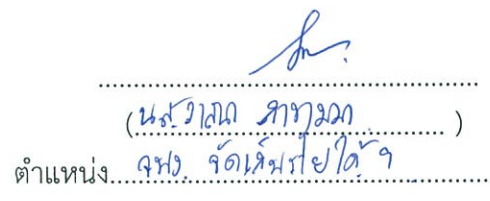 (น.ส.วาสนา ........ )
ตำแหน่ง จพง. จัดเก็บรายได้ ฯ